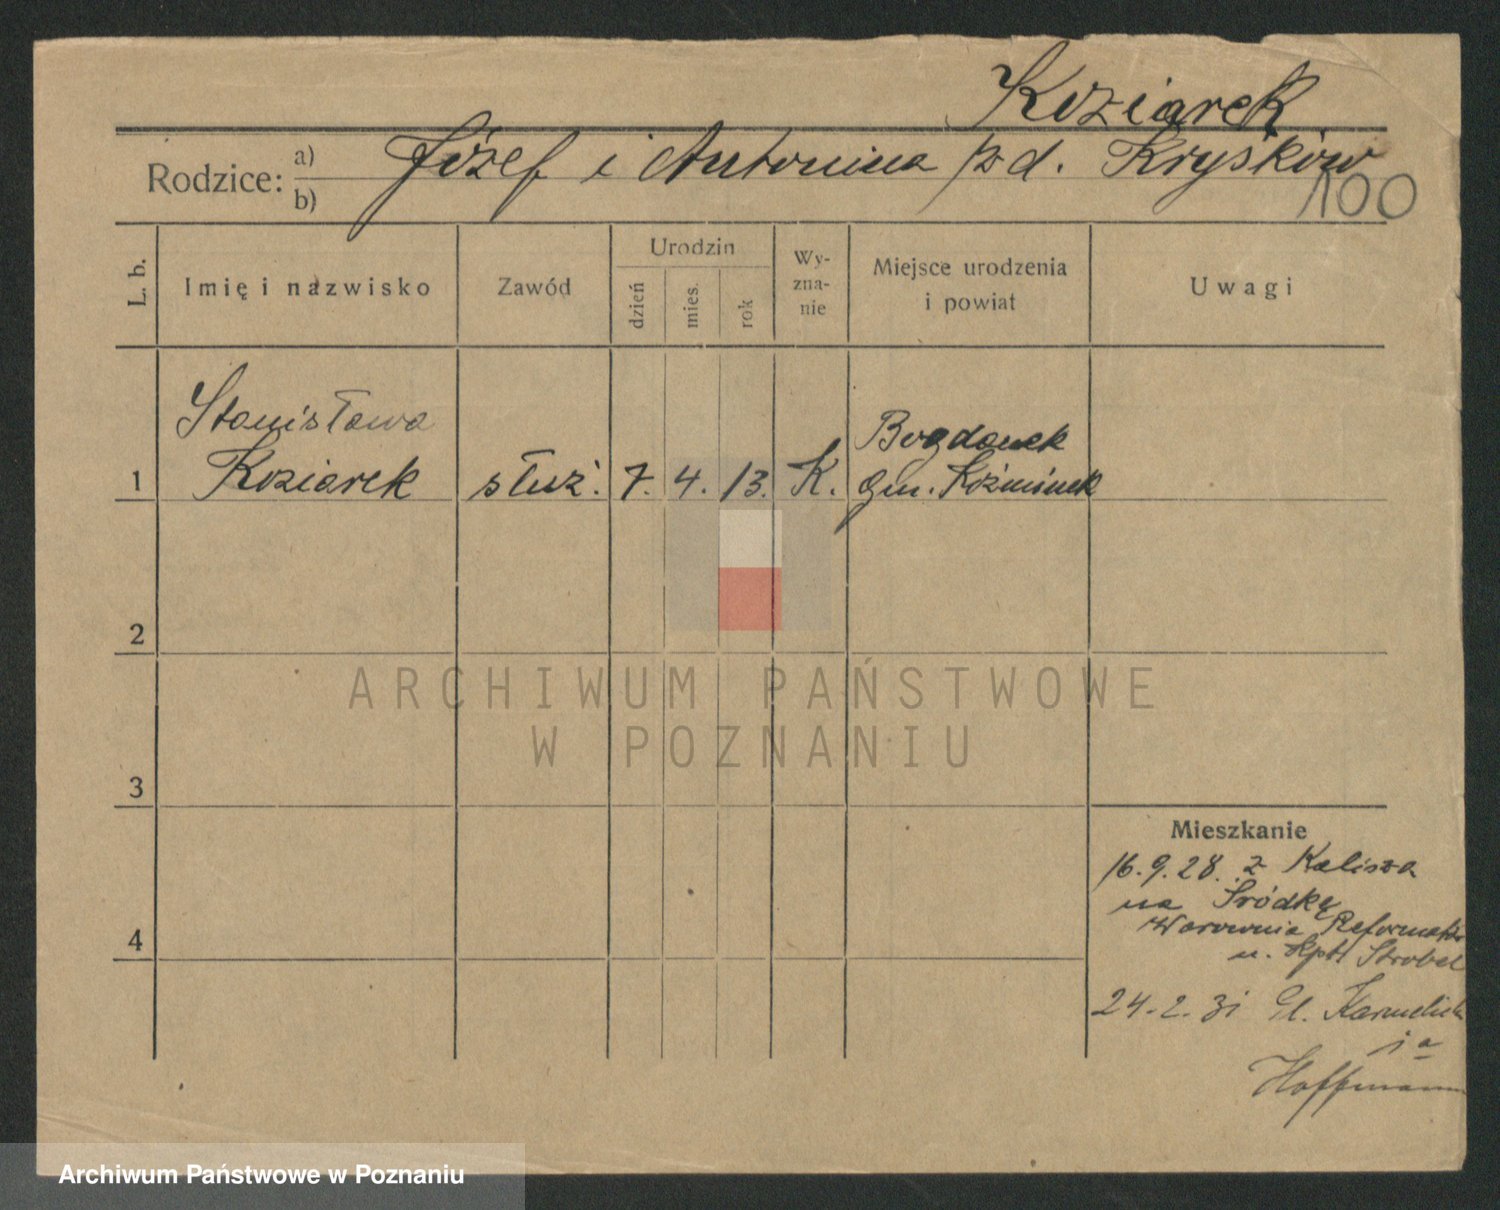 Koziarek
Rodzice: a) Józef i Antonina z d. Kryśków
b)
100
L. b.
Imię i nazwisko
Zawód
Urodzin
dzień
mies.
rok
Wy-
zna-
nie
Miejsce urodzenia
i powiat
Uwagi
Stanisława
Koziarek
1
służ.
7.
4.
13.
K.
Bogdanek
gm. Koźminek
2
ARCHIWUM PAŃSTWOWE
W POZNANIU
3
4
Mieszkanie
16.9.28. z Kalisza
na Śródkę
Warownia Reformatów
u. Kpt Strobel
24.2.31 Gł. Karmelicka
1a
Hoffmann
Archiwum Państwowe w Poznaniu